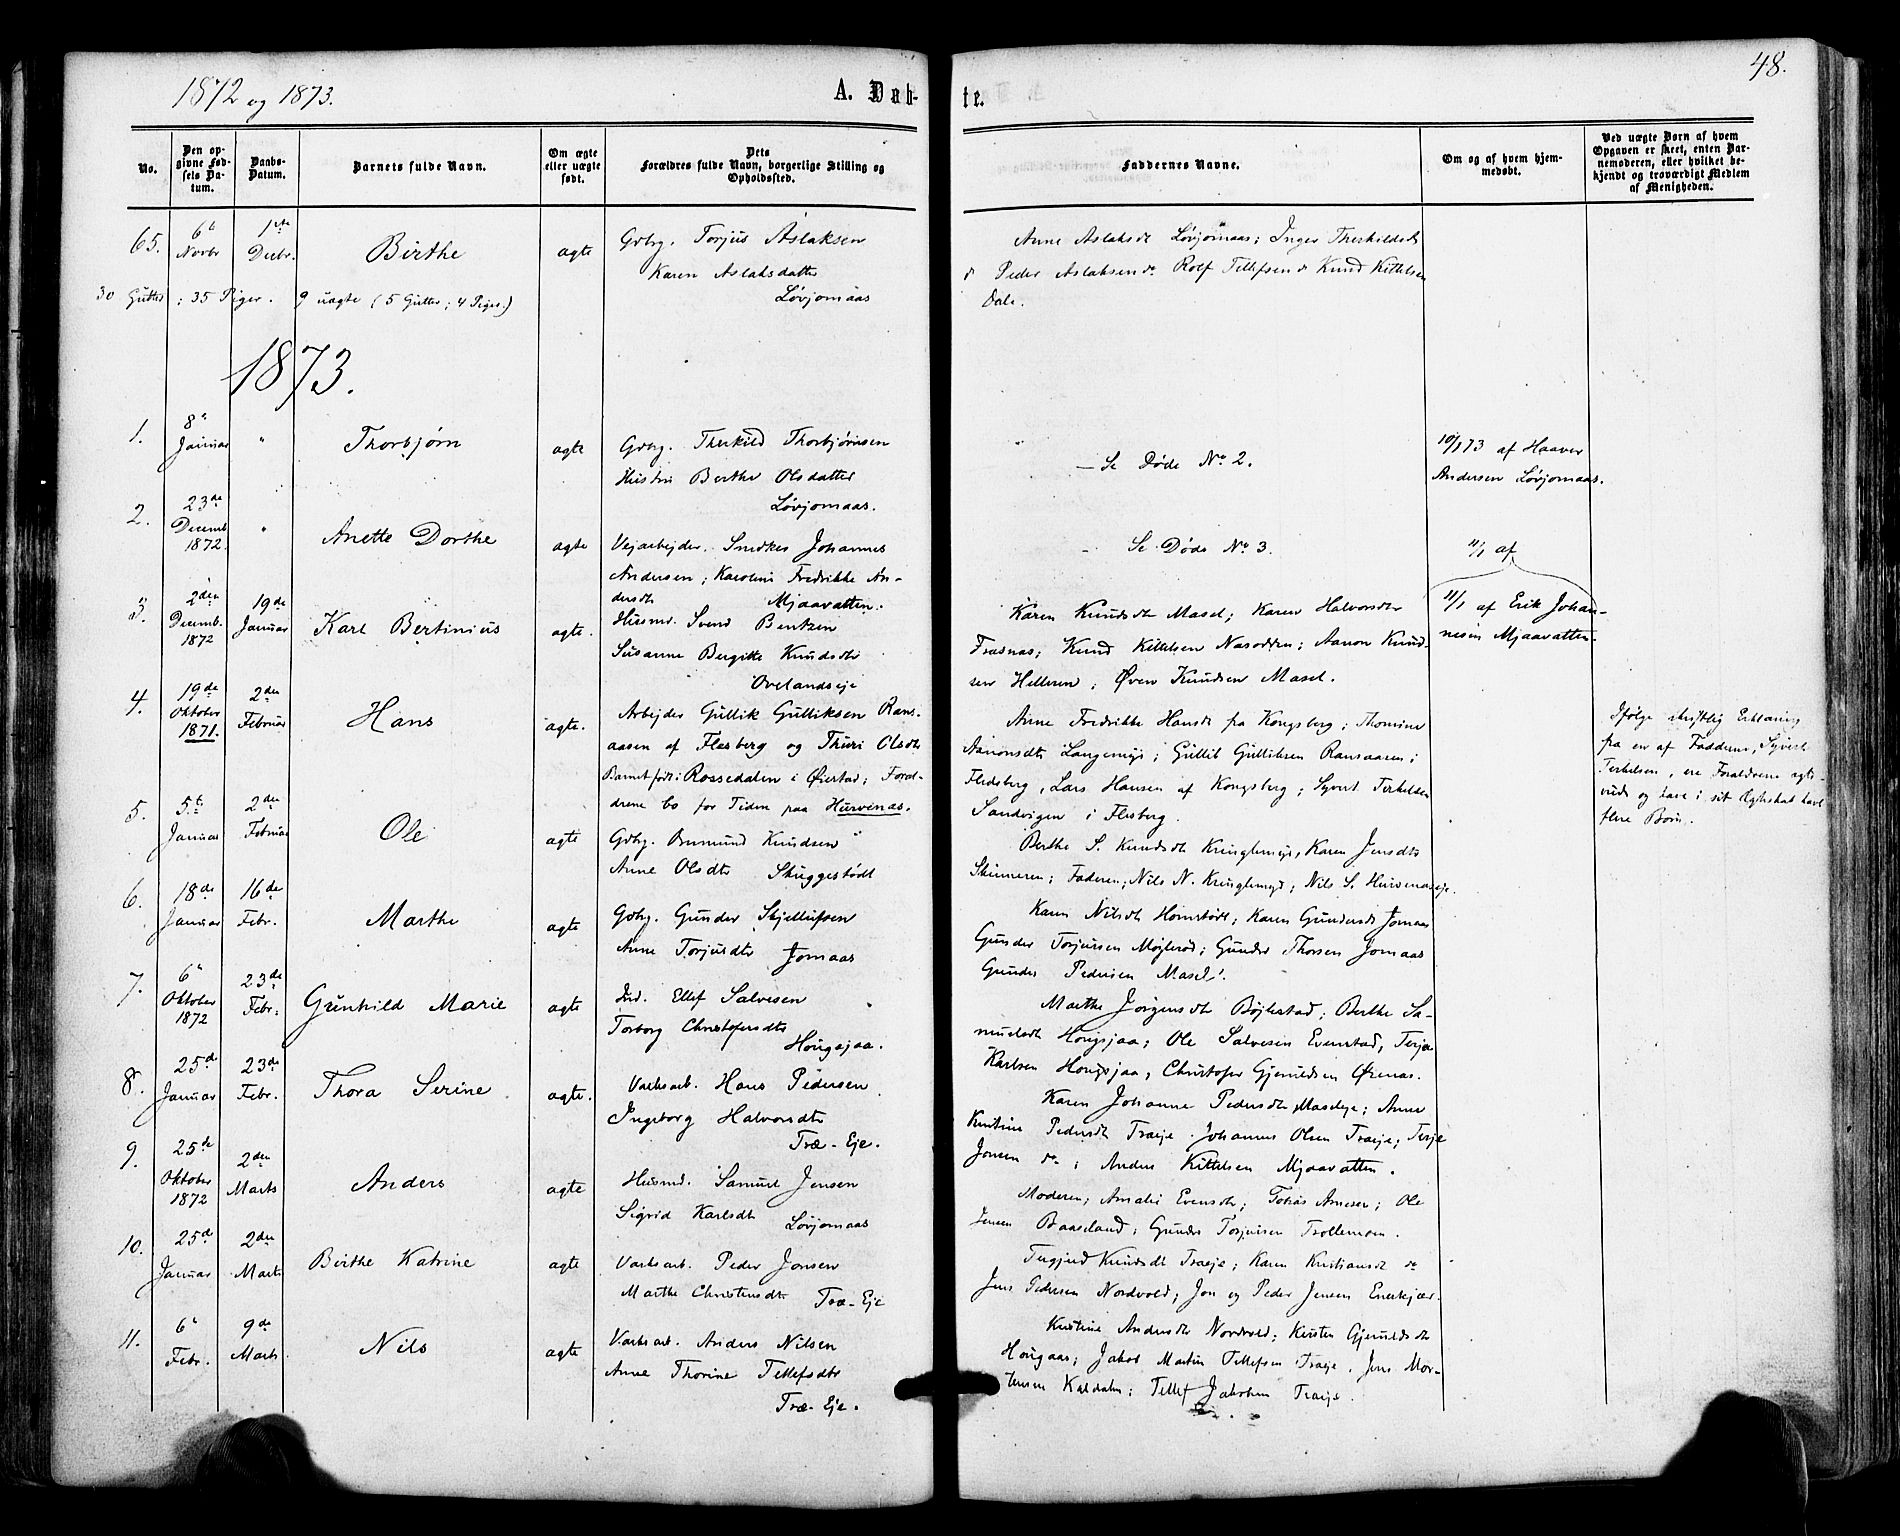 1872 og 1873.
A. Døb-
te.
48.
No.
Den op-
givne Fød-
sels Da-
tum.
Daabs-
Datum.
Barnets fulde Navn.
Om ægte
eller uægte
født.
Dets
Forældres fulde Navn, borgerlige Stilling og
Opholdssted.
Faddernes Navne.
Om og af hvem hjem-
medøbt.
Ved uægte Børn af hvem
Opgaven er skeet, enten Bar-
nemoderen, eller hvilket be-
kjendt og troværdigt Medlem
af Menigheden.
65.
6te
Novbr
1ste
Decbr.
Birthe
ægte
Gdbrg. Torjus Aslaksen
Karen Aslaksdatter
Løvjomaas
Anne Aslaksdt Løvjomaas; Inger Therkildsdt
do Peder Aslaksen do Rolf Tellefsen do Knud Kittelsen
Dale.
30 Gutter; 35 Piger. 9 uægte (5 Gutter; 4 Piger.)
1873.
1.
8de
Januar
"
Thorbjørn
ægte
Gdbrg. Therkild Thorbjørnsen
Hustru Berthe Olsdatter
Løvjomaas.
– Se Døde No 2.
10/1 73 af Haaver
Andersen Løvjomaas.
2.
23de
Decemb.
1872.
"
Anette Dorthe
ægte
Vejarbejder. Snedker Johannes
Andersen; Karoline Fredrikke An-
dersdt Mjaavatten.
- Se Døde No 3.
11/1 af
11/1 af Erik Johan-
nesen Mjaavatten.
3.
2den
Decemb.
1872
19de
Januar
Karl Bertinius
ægte.
Husmd. Svend Bentzen
Susanne Bergitte Knudsdtr
Ovelandseje
Karen Knudsdt Masel; Karen Halvorsdtr
Frasnas; Knud Kittelsen Nasodden; Aanon Knud-
sen Helleren; Øven Knudsen Masel.
4.
19de
Oktober
1871.
2den
Februar
Hans
ægte.
Arbejder Gullik Gulliksen Rans-
aasen af Flesberg og Thuri Olsdtr
Barnet født i Rossedalen i Øiestad; Foræl-
drene bo for Tiden paa Hurvenæs.
Anne Fredrikke Hansdt fra Kongsberg; Thomine
Aanonsdtr Langemyr; Gullik Gulliksen Ransaasen i
Flesberg, Lars Hansen af Kongsberg; Syvert Terkelsen
Sandvigen i Flesberg.
Ifølge skriftlig Erklæring
fra en af Fadderne, Syvert
Terkelsen, ere Forældrene ægte-
viede og have i sit Ægteskab havt
flere Børn.
5.
5te
Januar
2den
Februar
Ole
ægte
Gdbrg. Knudsen
Anne Olsdtr Skuggestødt
Berthe S. Knudsdt Kringlemyr, Karen Jensdtr
Skinneren; Faderen; Nils N. Kringlemyr; Nils S. Hurvenæseje.
6.
18de
Januar
16de
Febr.
Marthe
ægte
Gdbrg. Gunder Skjellufsen
Anne Torjusdtr Jomaas
Karen Nilsdt Homstødt; Karen Gundersdt Jomaas
Gunder Torjussen Møglerød; Gunder Thorsen Jomaas
Gunder Pedersen Masel.
7.
6te
Oktober
1872
23de
Febr.
Gunhild Marie
ægte
Ind. Ellef Salvesen
Torborg Christofersdtr
Hougsjaa.
Marthe Jørgensdtr Bøjlestad; Berthe Sa-
muelsdt Hougsjaa; Ole Salvesen Evenstad, Terje
Karlsen Hougsjaa, Christofer Gjeruldsen Ørenæs.
8.
25de
Januar
23de
Febr.
Thora Serine
ægte.
Værksarb. Hans Pedersen
Ingeborg Halvorsdtr
Træ-Eje.
Karen Johanne Pedersdtr Maseleje; Anne
Kirstine Pedersdt Træeje. Johannes Olsen Træeje; Terje
Jonsen do; Anders Kittelsen Mjaavatten.
9.
25de
Oktober
1872
2den
Marts
Anders
ægte
Husmd. Samuel Jensen
Sigrid Karlsdtr
Løvjomaas
Moderen; Amalie Evensdtr; Tobias Arnesen; Ole
Jensen Baaseland; Gunder Torjusen Trollemoen.
10.
25de
Januar
2den
Marts
Birthe Katrine
ægte
Værksarb. Peder Jonsen
Marthe Christensdtr Træ-Eje
Tugjerd Knudsdt Træeje; Karen Kristiansdt do
Jens Pedersen Nordvold; Jon og Peder Jensen Enerkjær.
11.
6te
Febr.
9de
Marts
Nils
ægte
Værksarb. Anders Nilsen
Anne Thorine Tellefsdtr
Træ-Eje.
Kirstine Andersdtr Nordvold; Kirsten Gjeruldsdtr
Hougaas; Jakob Martin Tellefsen Træeje. Jens Mor-
tensen Kaldalen; Tellef Jakobsen Træeje.